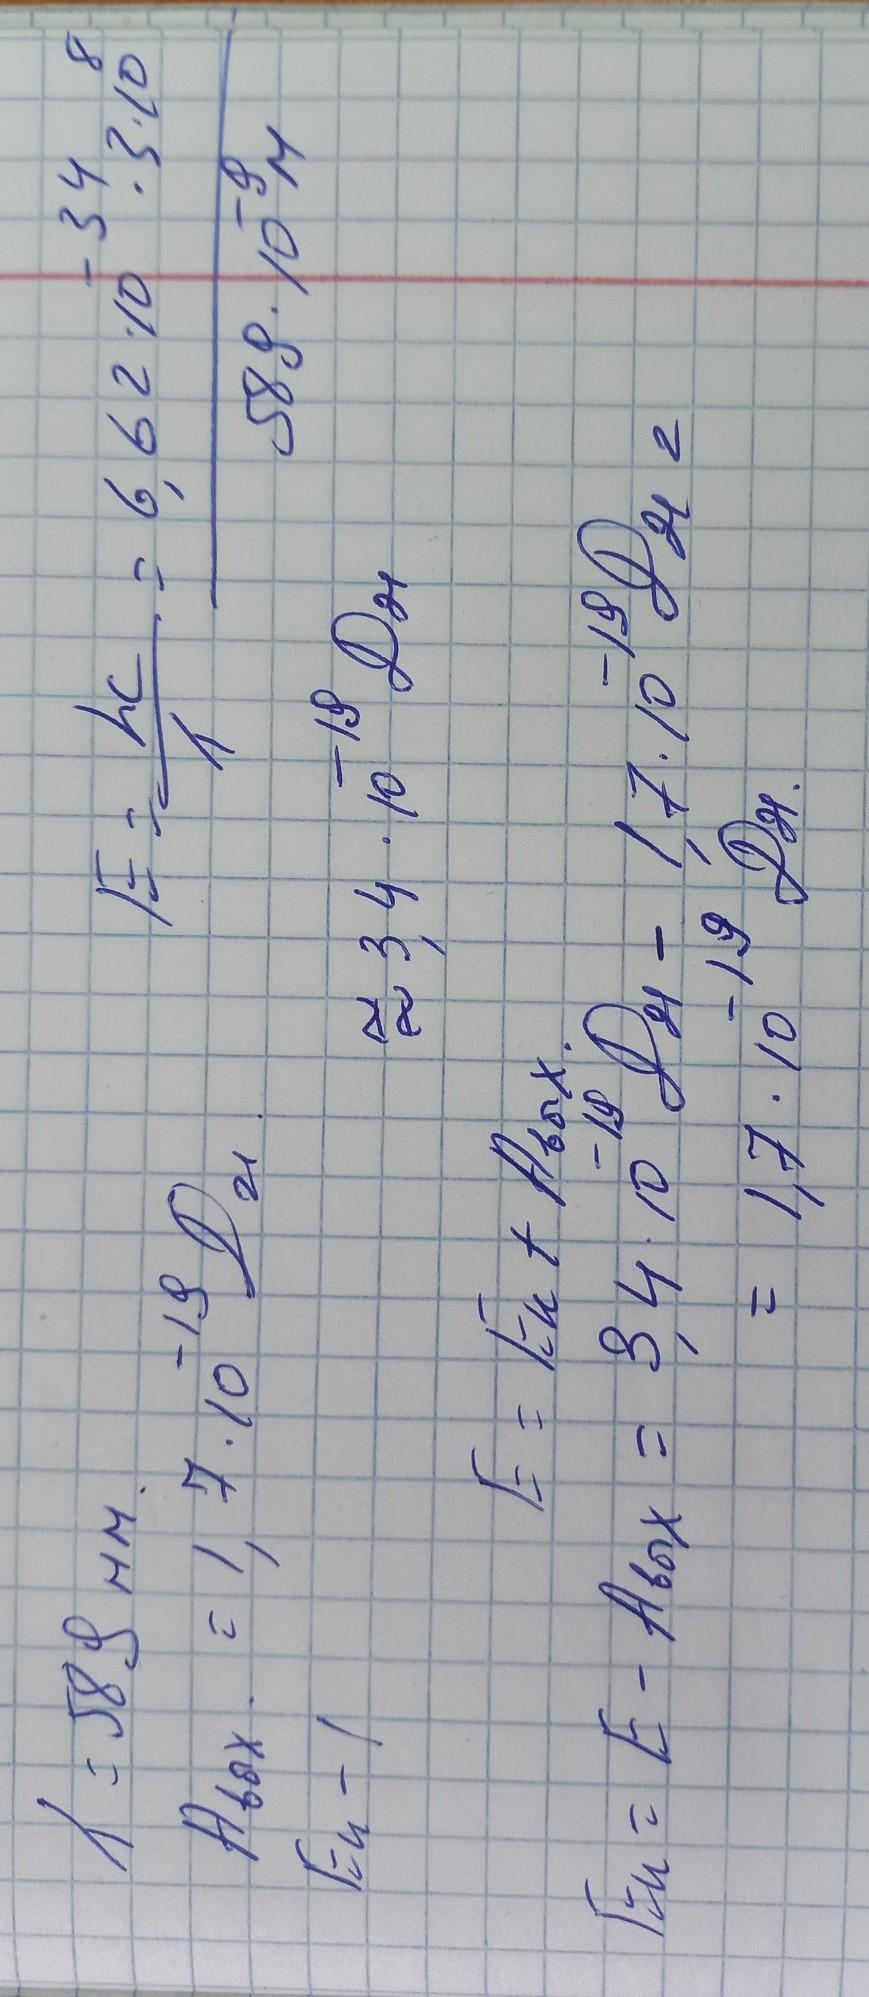 λ = 589 нм.
Aвых. = 1,7·10⁻¹⁹ Дж.
Eк - ?
E = hc/λ = 6,62·10⁻³⁴·3·10⁸/589·10⁻⁹ м
≈ 3,4·10⁻¹⁹ Дж
E = Eк + Aвых.
Eк = E - Aвых = 3,4·10⁻¹⁹ Дж - 1,7·10⁻¹⁹ Дж =
= 1,7·10⁻¹⁹ Дж.